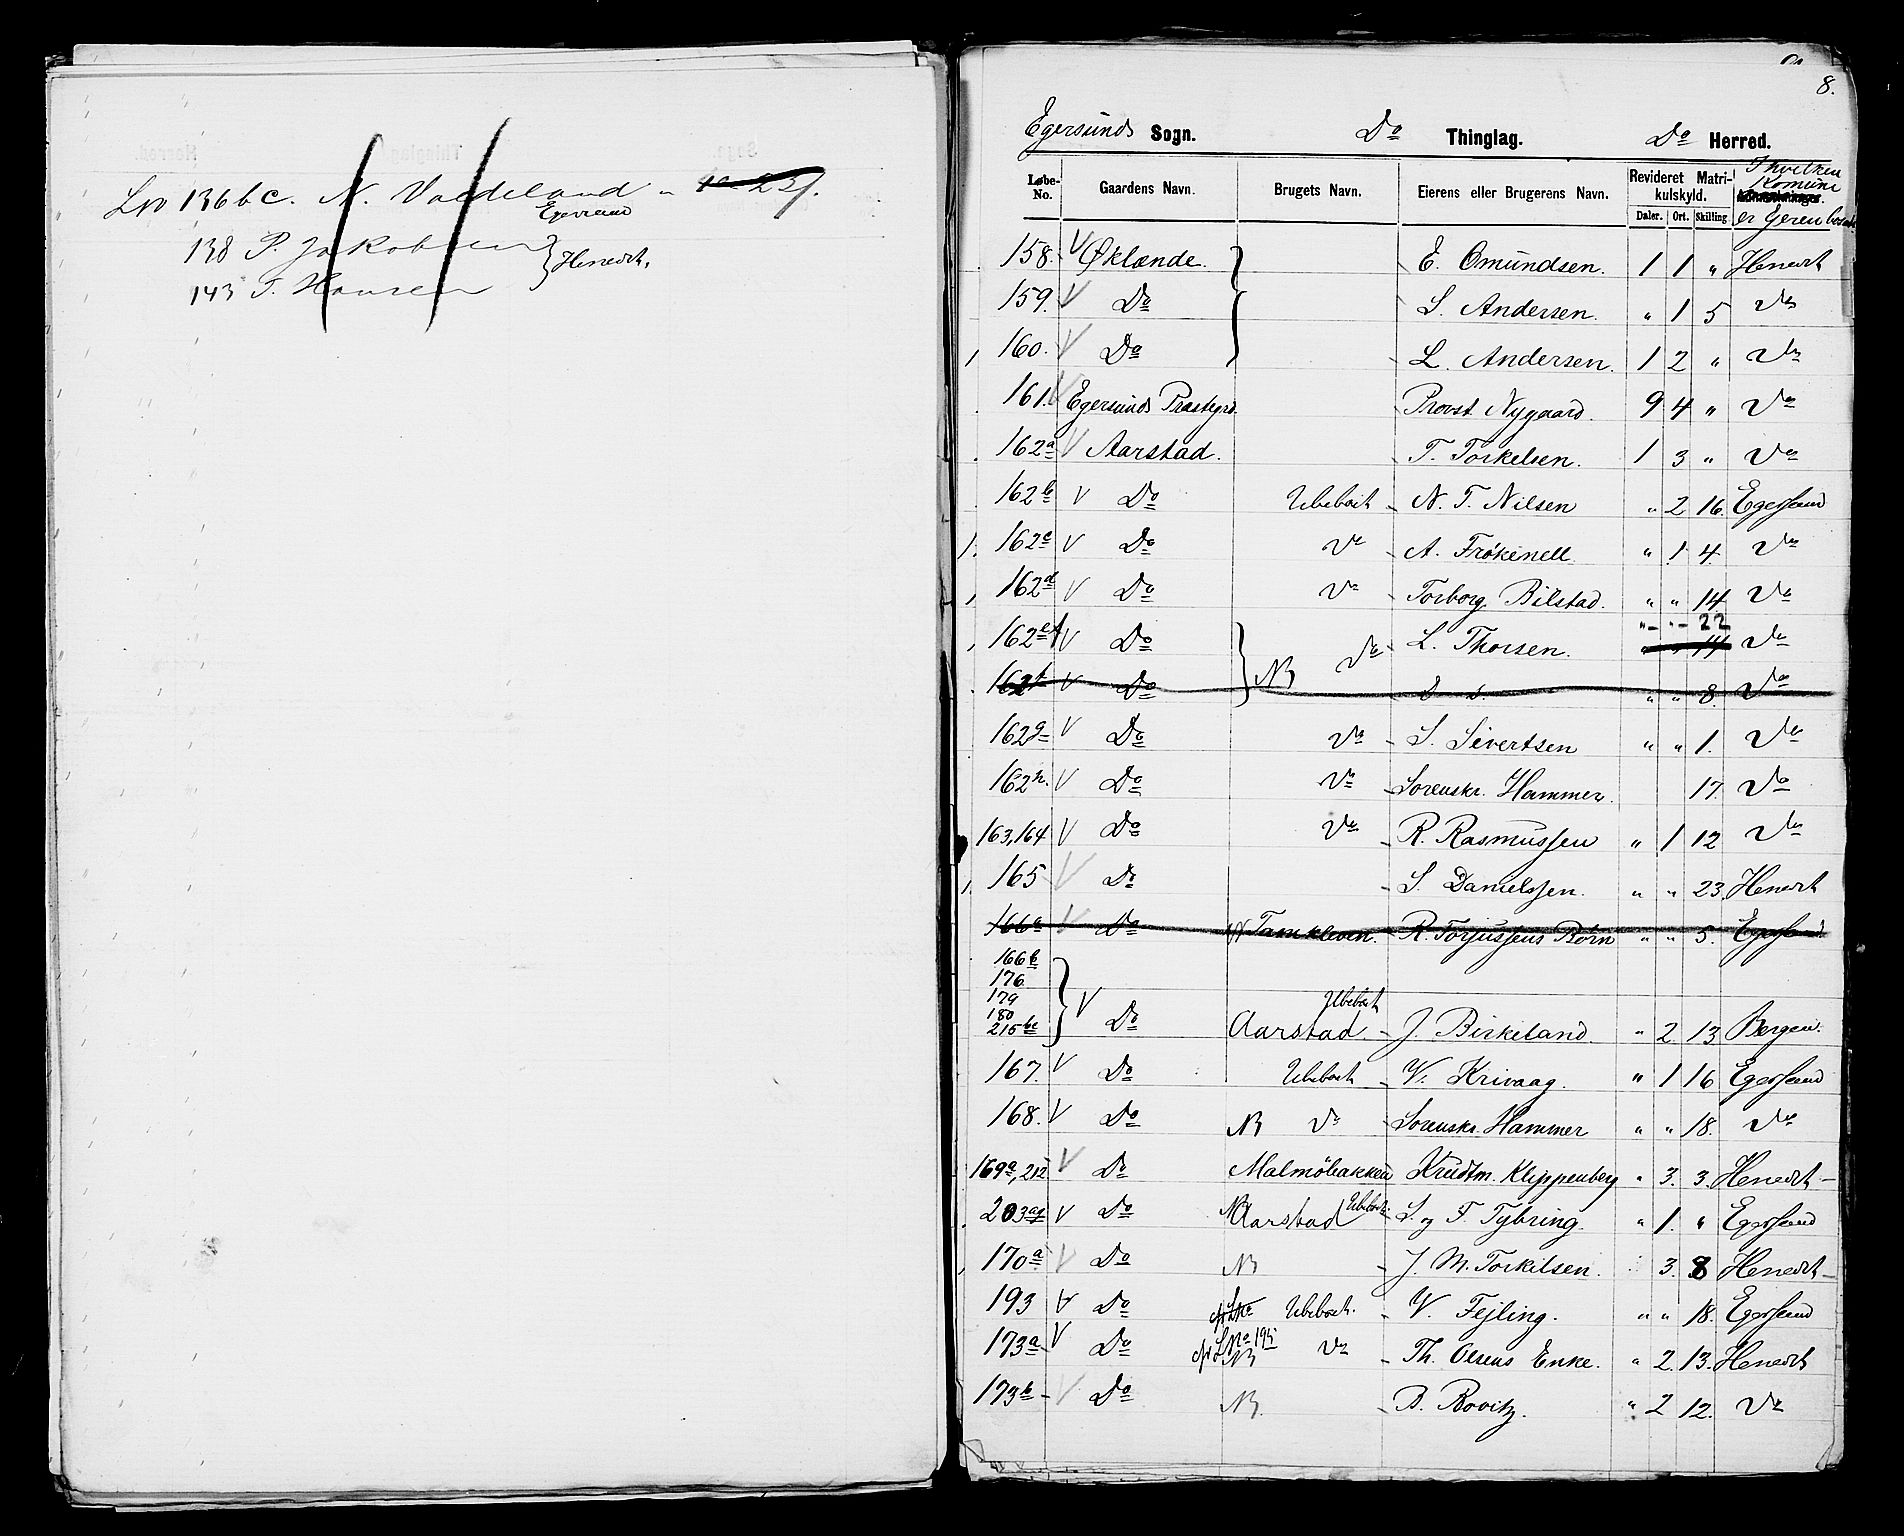 Lno 136 b c. N. Vadeland " 1 " 23/.
Egersund
138 P. Jakobsen } Henedst.
143 T. Hansen
8.
Egersunds Sogn. Do Thinglag. Do Herred.
Løbe-No. Gaardens Navn. Brugets Navn. Eierens eller Brugerens Navn. Revideret Matrikulskyld. Daler. Ort. Skilling I hvilken Komune er Eieren bosat.
158. V Øklænde. E. Omundsen. 1 1 " Henedst
159. V Do S. Andersen. " 1 5 Do
160. V Do L. Andersen. 1 2 " Do
161. V Egersunds Præstegrd. Provst Nygaard. 9 4 " Do
162a V Aarstad. T. Torkelsen. 1 3 " Do
162b V Do Ubebod N. T. Nilsen " 2 16 Egersund
162c V Do Do A. Frökenell " 1 4. Do
162d V Do Do Torborg Bilstad. " " 14. Do
" " 22
162ef V Do } NB Do L. Thorsen. " " 14 Do
162f V Do " " 8. Do
162g V Do Do S. Sivertsen " " 1. Do
162h. V Do Do Sorenskr. Hammer. 17. Do
163,164 V Do Do R. Rasmussen " 1 12 Do
165 V Do S. Danielssen. " " 23. Henedst
166a V Do Tamkleven. R. Torjussens Børn " " 5. Egersund
166b
176
179
180
215bc } V Do Aarstad Ubebod J. Birkeland. " 2. 13 Bergen.
167. V Do Ubebod V. Krivaag. " 1 16 Egersund
168. V Do NB Do Sorenskr. Hammer " " 18. Do
169a, 212 V Do Malmöbakken Krudtm. Klippenberg " 3. 3. Henedst
203ag V Do NB Aarstad Ubebod. S. og T. Tybring. " 1. " Egersund
170a V Do NB J. M. Torkilsen. 3. 8 Henedst
193 V Do Ubebod. V. Fejling. " " 18. Egersund
173a V Do cfr LNo 195 NB Do Th. Olsens Enke. " 2. 13. Henedst
173b V Do NB. B. Bovitz. " 2 12. Do